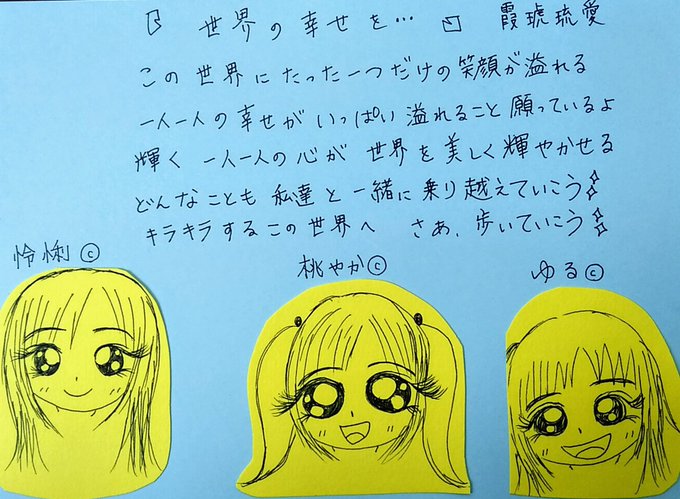 『 世界の幸せを… 』 霞琥琉愛
この世界にたった一つだけの笑顔が溢れる
一人一人の幸せがいっぱい溢れること願っているよ
輝く一人一人の心が世界を美しく輝やかせる
どんなことも私達と一緒に乗り越えていこう
キラキラするこの世界へ さあ、歩いていこう
怜悧©
桃やか©
ゆる©